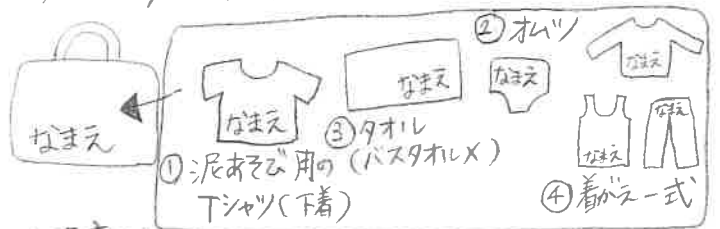 なまえ
なまえ
① 泥あそび用の
Tシャツ(下着)
なまえ
③ タオル
(バスタオル×)
② オムツ
なまえ
なまえ
なまえ
なまえ
④ 着がえ一式